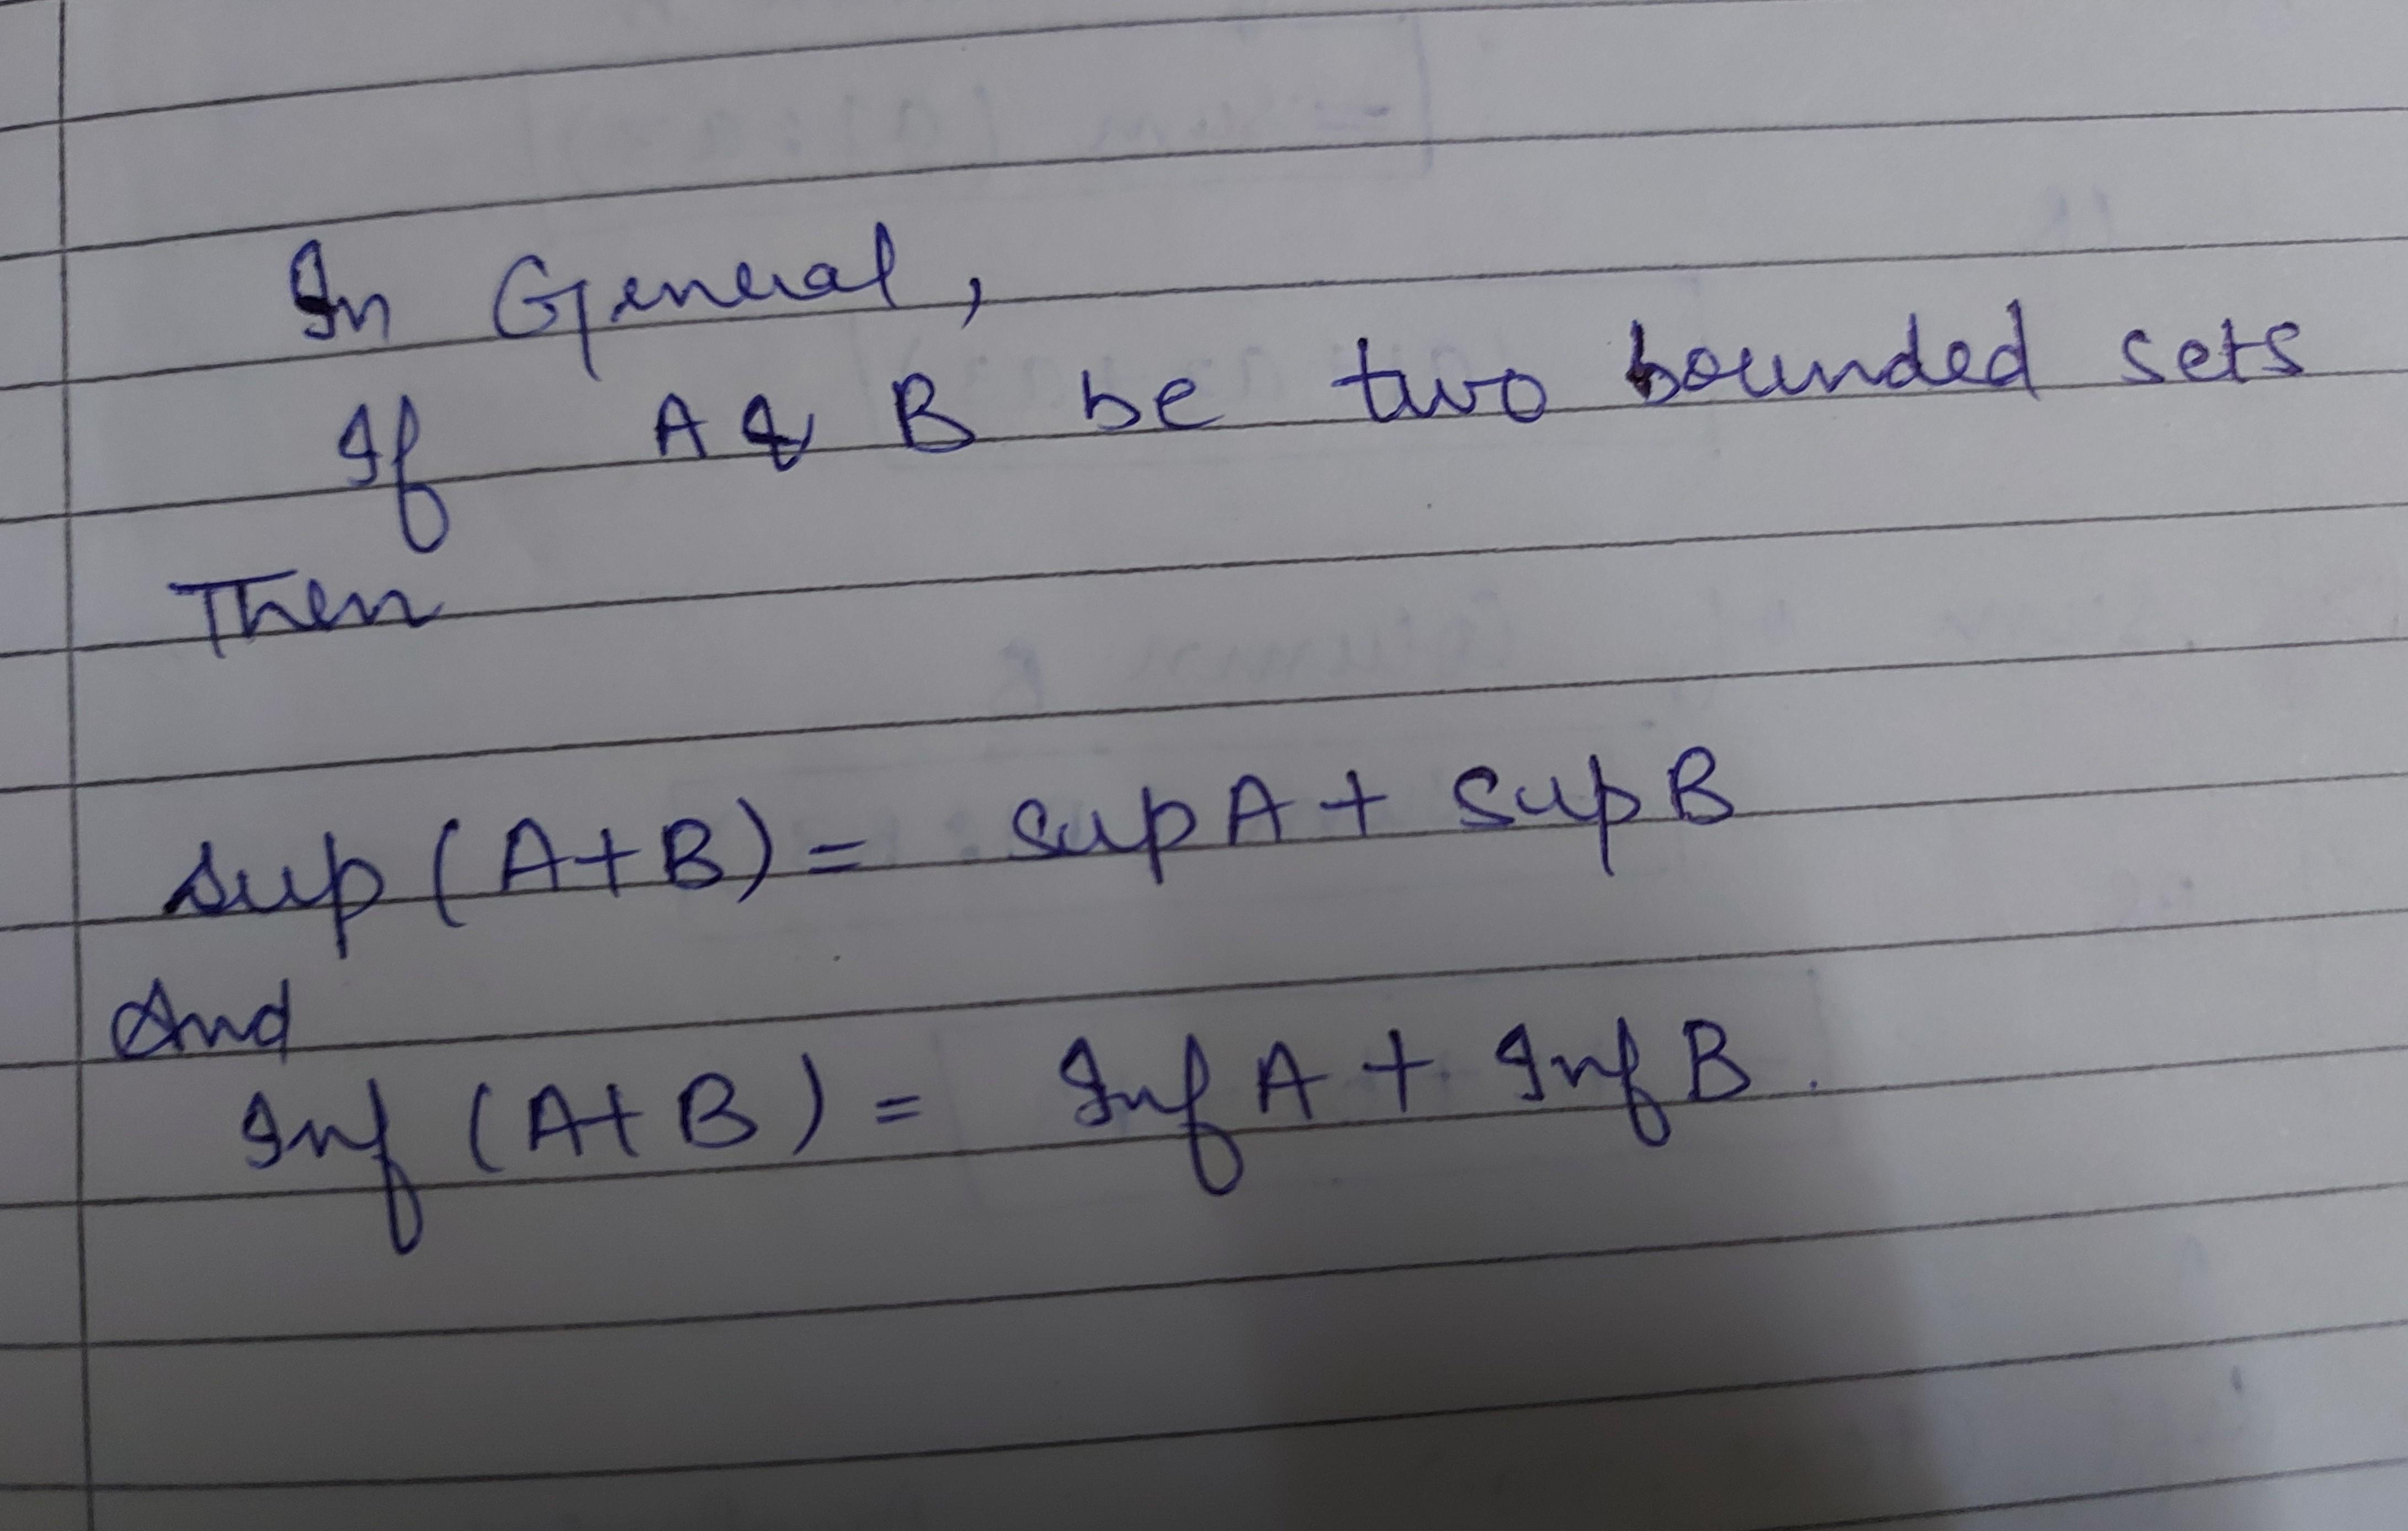 In General,
If A & B be two bounded sets
Then
sup (A+B) = sup A + sup B
And
Inf (A+B) = Inf A + Inf B.